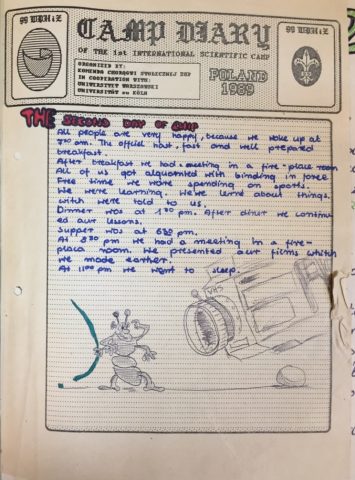 Z & HW 66
Z & HW 66
CAMP DIARY
OF THE 1st INTERNATIONAL SCIENTIFIC CAMP
ORGANIZED BY:
KOMENDA CHORĄGWI STOŁECZNEJ ZHP
IN COOPERATION WITH:
UNIWERSYTET WARSZAWSKI
UNIVERSITÄT zu KÖLN
POLAND
1989
THE SECOND DAY OF CAMP
All people are very happy, because we woke up at
7³⁰ am. The officiel host, fast and well prepared
breakfast.
After breakfast we had a meeting in a fire-place room
All of us got alquainted with binding in force
Free time we were spending on sports.
We were learning. We've lernt about things,
witch were told to us.
Dinner was at 1³⁰ pm. After diner we continu-
ed our lessons.
Supper was at 6³⁰ pm.
At 8³⁰ pm we had a meeting in a fire-
placa room. We presented our films whitch
we made earher!
At 11⁰⁰ pm we went to sleep.